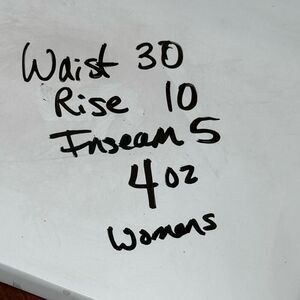 Waist 30
Rise 10
Inseam 5
4oz
Womens